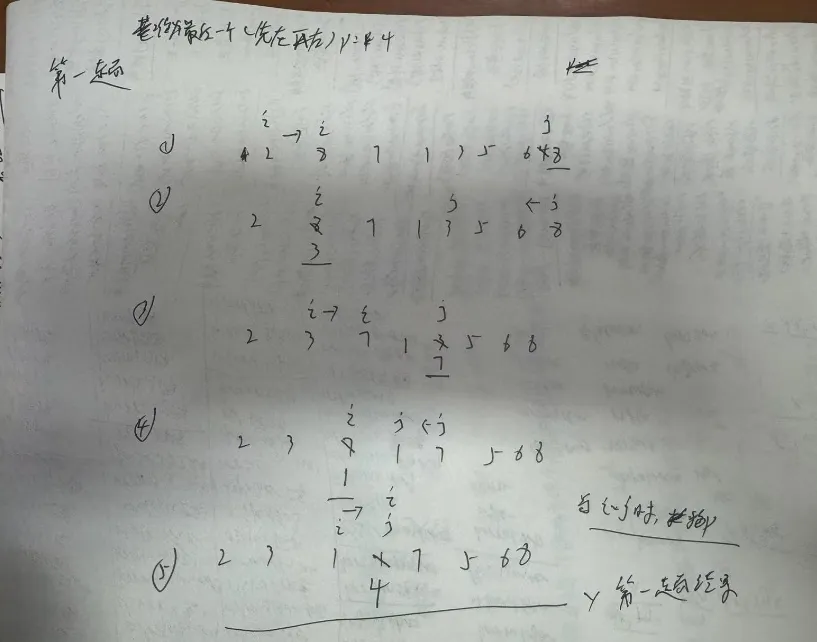 基准为最后一个(先左再右) v = 4
第一趟
① i → i j
2 8 7 1 3 5 6 4 8
② i j ← j
2 8 7 1 3 5 6 8
3
③ i → i j
2 3 7 1 3 5 6 8
7
④ i j ← j
2 3 7 1 7 5 6 8
1
→ i
i j
当 i=j 时,
⑤ 2 3 1 1 7 5 6 8
4
第一趟结果